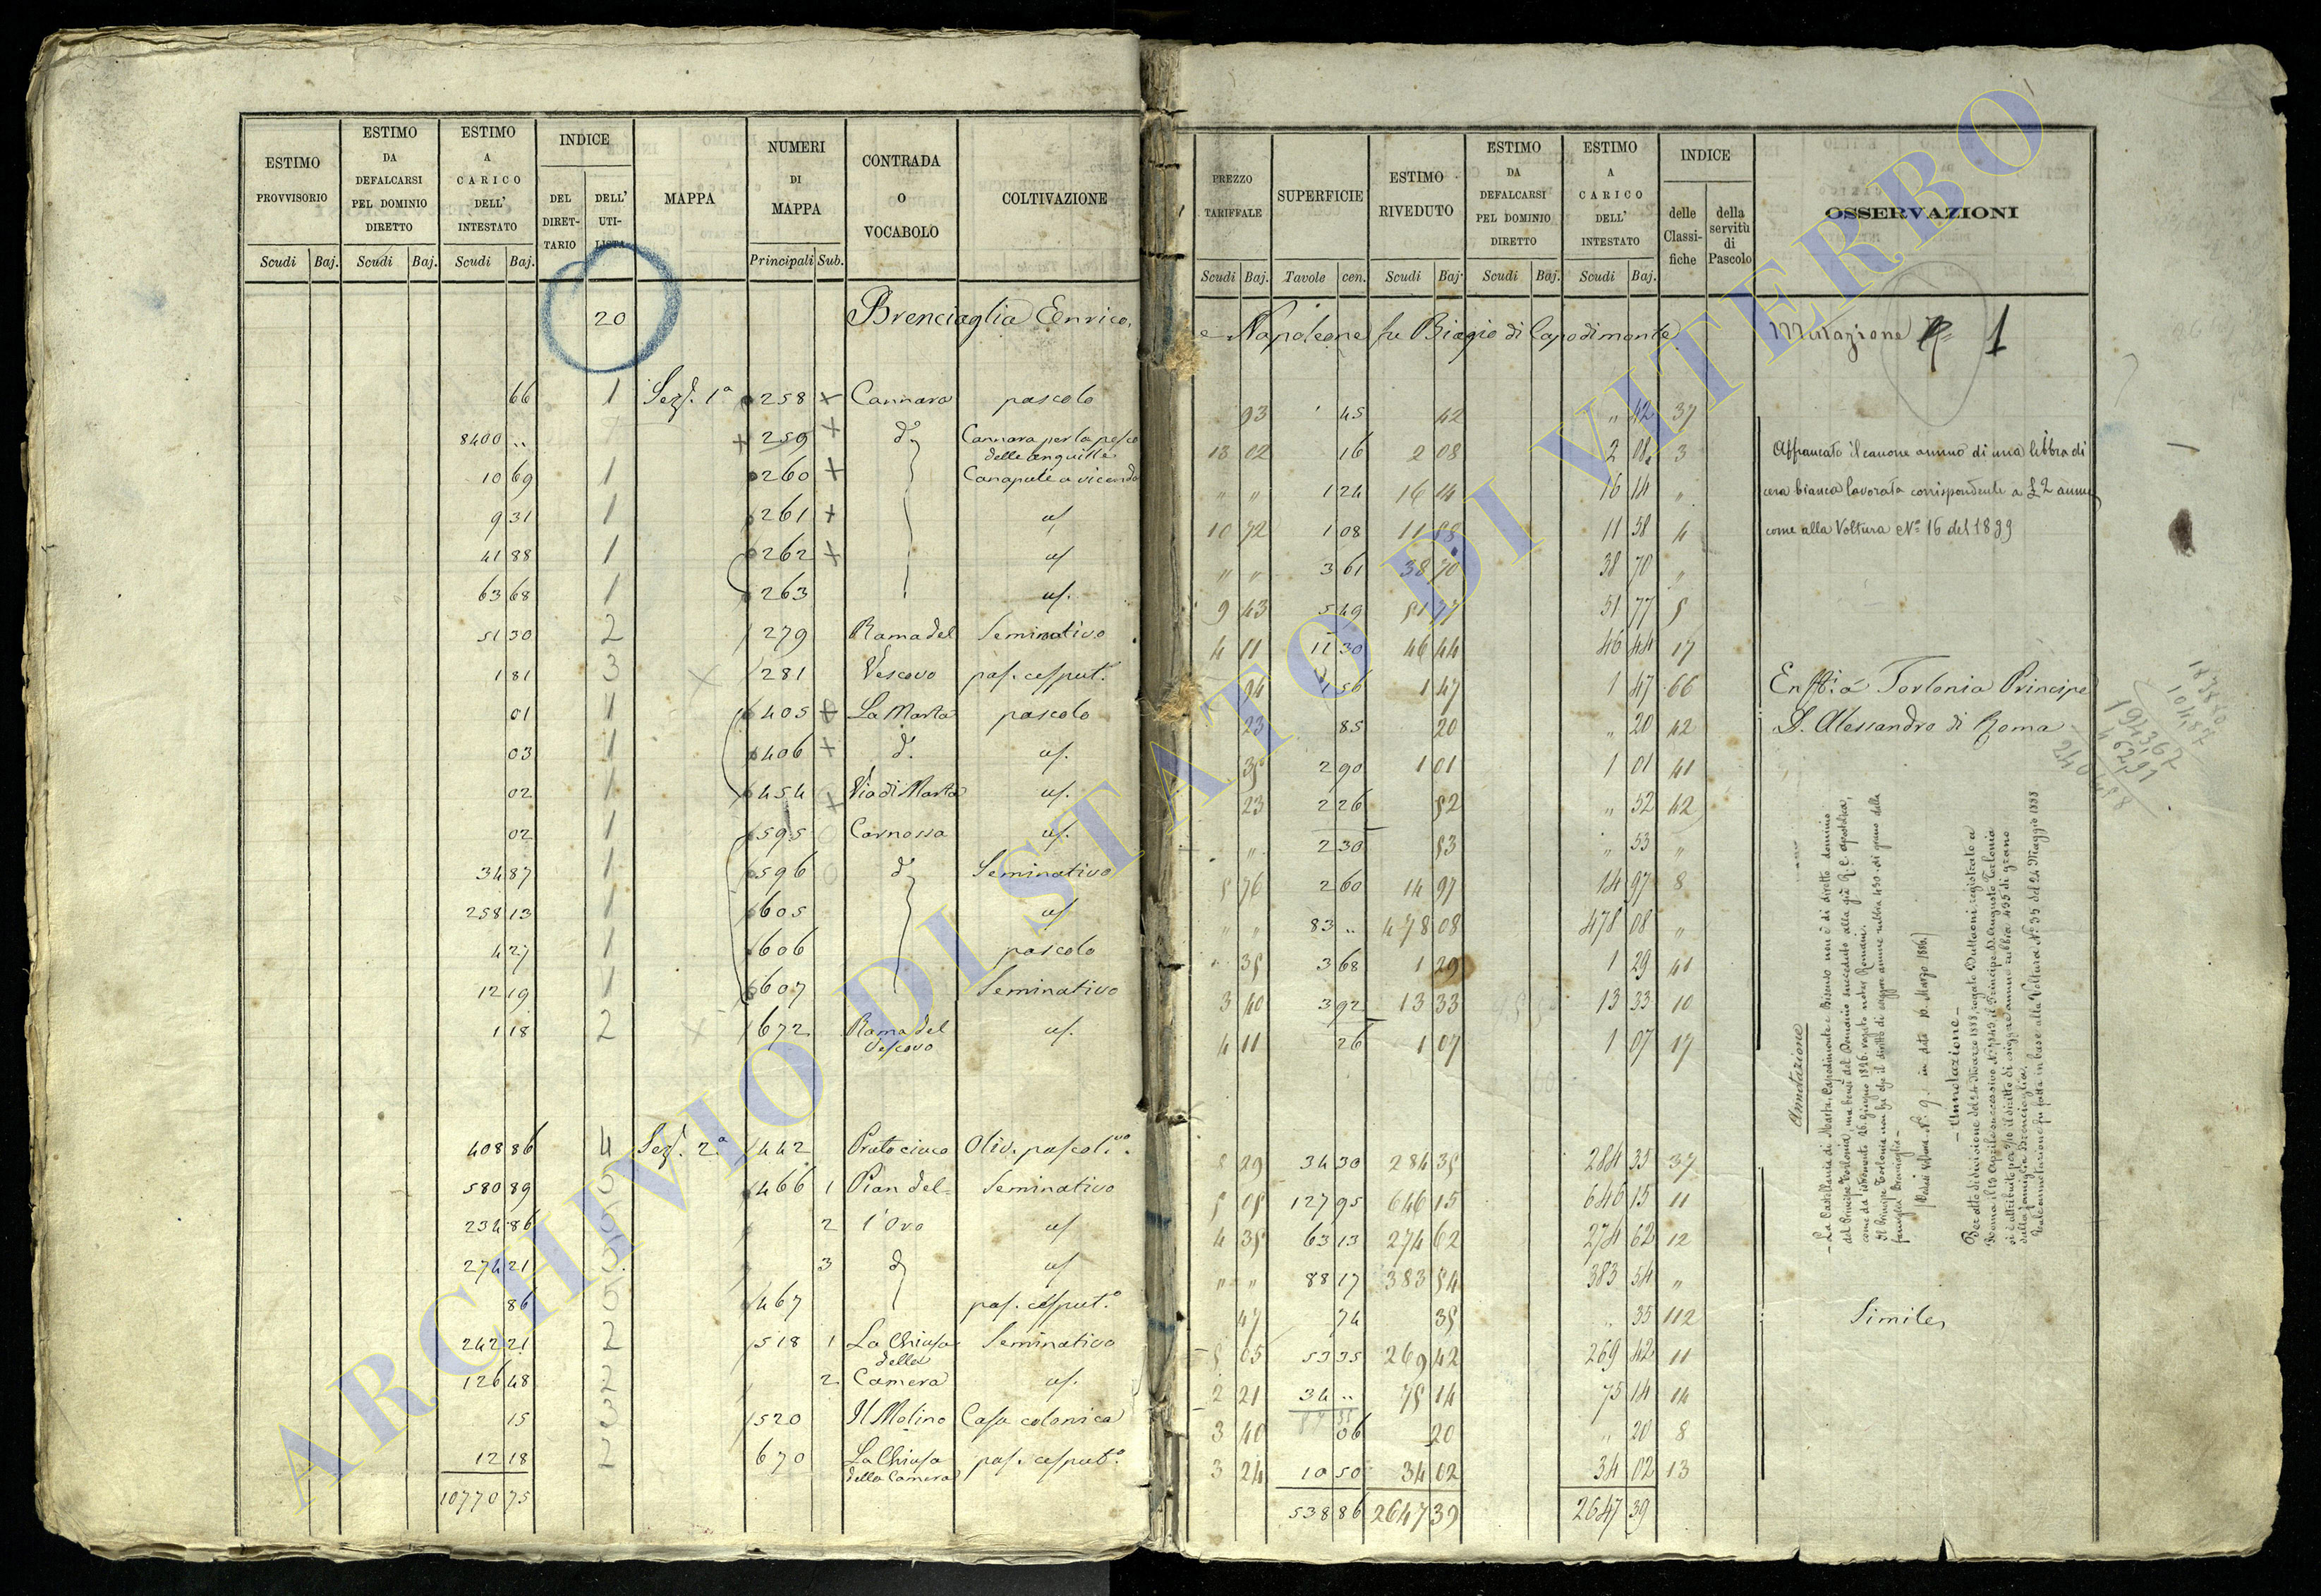 ESTIMO PROVVISORIO
ESTIMO DA DEFALCARSI PEL DOMINIO DIRETTO
ESTIMO A CARICO DELL' INTESTATO
INDICE
DEL DIRETTARIO
DELL' UTILISTA
MAPPA
NUMERI DI MAPPA
CONTRADA O VOCABOLO
COLTIVAZIONE
Scudi Baj. Scudi Baj. Scudi Baj. Principali Sub.
PREZZO TARIFFALE
SUPERFICIE
ESTIMO RIVEDUTO
ESTIMO DA DEFALCARSI PEL DOMINIO DIRETTO
ESTIMO A CARICO DELL' INTESTATO
INDICE
delle Classifiche
della servitù di Pascolo
OSSERVAZIONI
Scudi Baj. Tavole cen. Scudi Baj. Scudi Baj. Scudi Baj.
20 Brenciaglia Enrico,
e Napoleone fu Biagio di Capodimonte
Mutazione 1
66 1 Sez. 1ª 258 Cannara pascolo
93 45 42 " 42 37
8400 .. 259 d° Cannara per la pesca
delle anguille
13 02 16 2 08 2 08 3
10 69 1 260 Canapule a vicenda
" " 1 24 16 14 16 14 "
9 31 1 261 "
10 72 1 08 11 58 11 58 4
41 88 1 262
" " 3 61 38 70 38 70 "
63 68 1 263
9 43 5 49 51 77 51 77 5
51 30 2 279 Rama del Seminativo
4 11 11 30 46 44 46 44 17
1 81 3 281 Vescovo pas. cesput.°
94 1 56 1 47 1 47 66
01 1 405 La Marta pascolo
23 85 20 " 20 42
03 1 406 d.
35 2 90 1 01 1 01 41
02 1 454 Via di Marta
23 2 26 52 " 52 42
02 1 595 Carnossa
" 2 30 53 " 53 "
34 87 1 596 d° Seminativo
5 76 2 60 14 97 14 97 8
258 13 1 605
" " 83 .. 478 08 478 08 "
4 27 1 606 pascolo
" 35 3 68 1 29 1 29 41
12 19 1 607 Seminativo
3 40 3 92 13 33 13 33 10
1 18 2 672 Rama del
Vescovo
4 11 26 1 07 1 07 17
408 86 4 Sez. 2ª 442 Prato cinco Oliv. pascol.vo
8 29 34 30 284 35 284 35 37
580 89 5 466 1 Pian del= Seminativo
5 05 127 95 646 15 646 15 11
234 86 5 2 l'Ovo
4 35 63 13 274 62 274 62 12
274 21 5 3 d°
" " 88 17 383 54 383 54 "
86 5 467 pas. cesput.°
47 74 35 " 35 112
242 21 2 518 1 La Chiusa Seminativo
della
5 05 53 35 269 42 269 42 11
126 48 2 2 Camera
2 21 34 .. 75 14 75 14 14
15 3 520 Il Molino Casa colonica
3 40 06 20 " 20 8
12 18 2 670 La Chiusa pas. cesput.°
della Camera
3 24 10 50 34 02 34 02 13
10770 75
538 86 2647 39 2647 39
Affrancato il canone annuo di una libbra di
cera bianca lavorata corrispondente a £ 2 annue
come alla Voltura N° 16 del 1899
Enf.ª a Torlonia Principe
D. Alessandro di Roma
Annotazione
- La Castellania di Marta, Capodimonte e Bisenzo non è di diretto dominio
del Principe Torlonia, ma bensì del Demanio succeduto alla già R. C. apostolica,
come da istromento 26 Giugno 1826 rogato notar Romani.
Il Principe Torlonia non ha che il diritto di esiggere annue rubbia 450 di grano dalla
famiglia Brenciaglia -
(Vedasi voltura N. 9 in data 10 Marzo 1886)
- Annotazione -
Roma il 13 Aprile successivo N. 7243 il Principe D. Augusto Torlonia
dalla famiglia Brenciaglia.
Tale annotazione fu fatta in base alla Voltura N. 35 del 24 Maggio 1888
Simile
ARCHIVIO DI STATO DI VITERBO